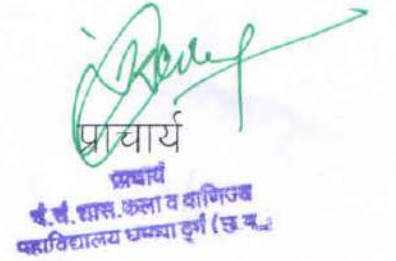 प्राचार्य
प्राचार्य
चं.चं.शास.कला व वाणिज्य
महाविद्यालय धमधा दुर्ग (छ.ग.)